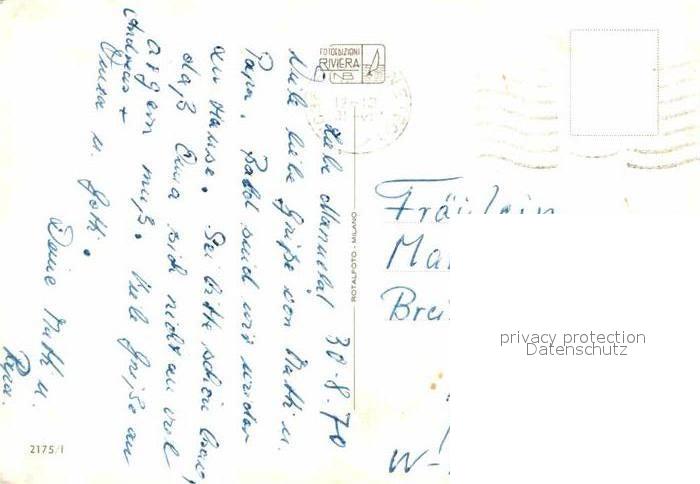 Liebe Manuela! 30.8.70
Viele liebe Grüße von Mutti u.
Papa. Bald sind wir wieder
zu Hause. Sei bitte schön brav,
daß Oma sich nicht zu viel
ärgern muß. Viele Grüße an
Andreas +
Oma u. Gotti.
Deine Mutti u.
Papa.
FOTOEDIZIONI
RIVIERA
NB
ROTALFOTO - MILANO
2175/I
Fräulein
Ma
Brei
W-
privacy protection
Datenschutz